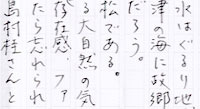 水はぐるり地
津の海に故郷
だろう。
松である。
る大自然の気
存在感 ファ
たら忘れられ
島村桂さんと